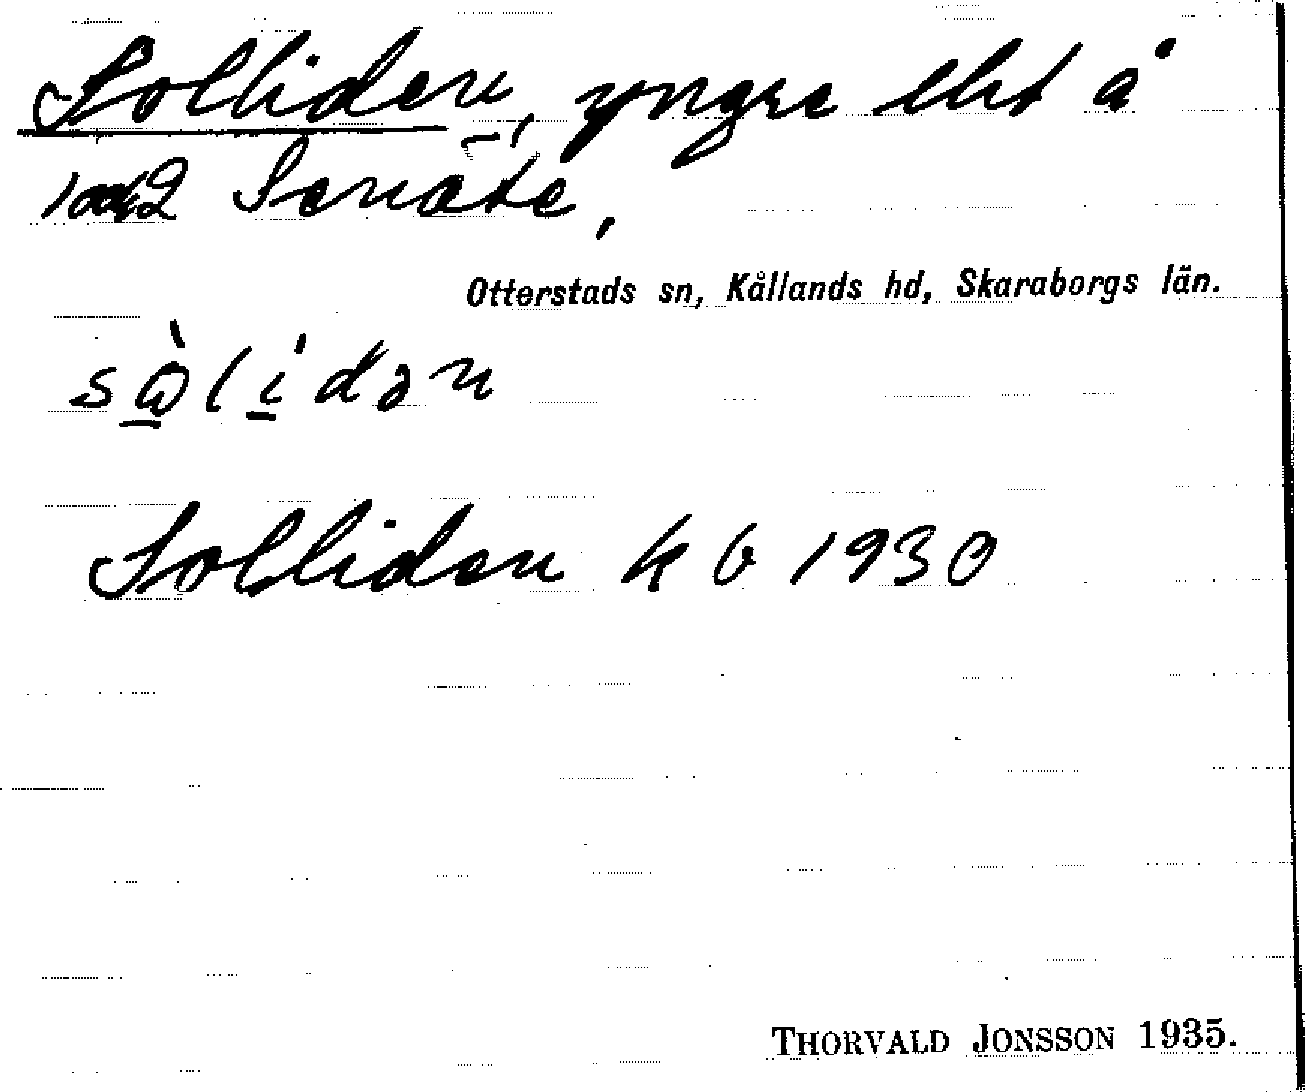 Solliden, yngre lht å
Senäte,
Otterstads sn, Kållands hd, Skaraborgs län.
Solliden kb 1930
THORVALD JONSSON 1935.